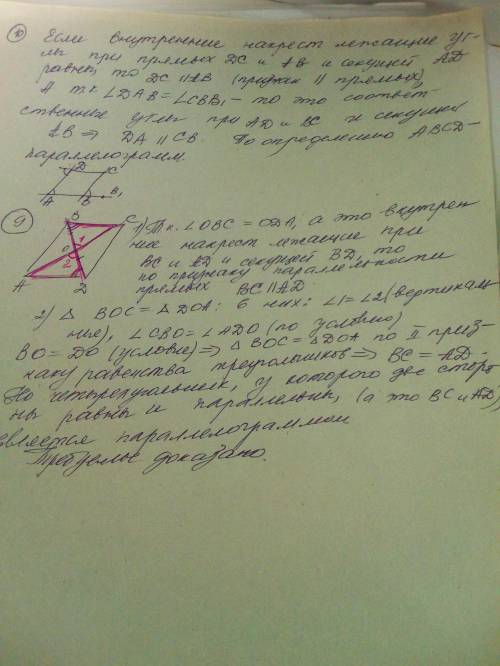 10 Если внутренние накрест лежащие уг-
лы при прямых DC и AB и секущей AD
равны, то DC || AB (признак || прямых)
А т.к ∠DAB = ∠CBB₁ – то это соответ-
ственные углы при AD и BC и секущей
AB ⇒ DA || CB. По определению ABCD –
параллелограмм.
D C
A B B₁
9
B C
1
O
2
A D
1) Т.к. ∠OBC = ODA, а это внутрен
ние накрест лежащие при
BC и AD и секущей BD, то
по признаку параллельности
прямых BC || AD.
2) △ BOC = △ DOA: В них: ∠1=∠2 (вертикаль
ные), ∠CBO = ∠ADO (по условию)
BO = DO (условие) ⇒ △ BOC = △ DOA по II приз-
наку равенства треугольников ⇒ BC = AD.
Но четырехугольник, у которого две сторо
ны равны и параллельны, (а это BC и AD)
является параллелограммом
Требуемое доказано.